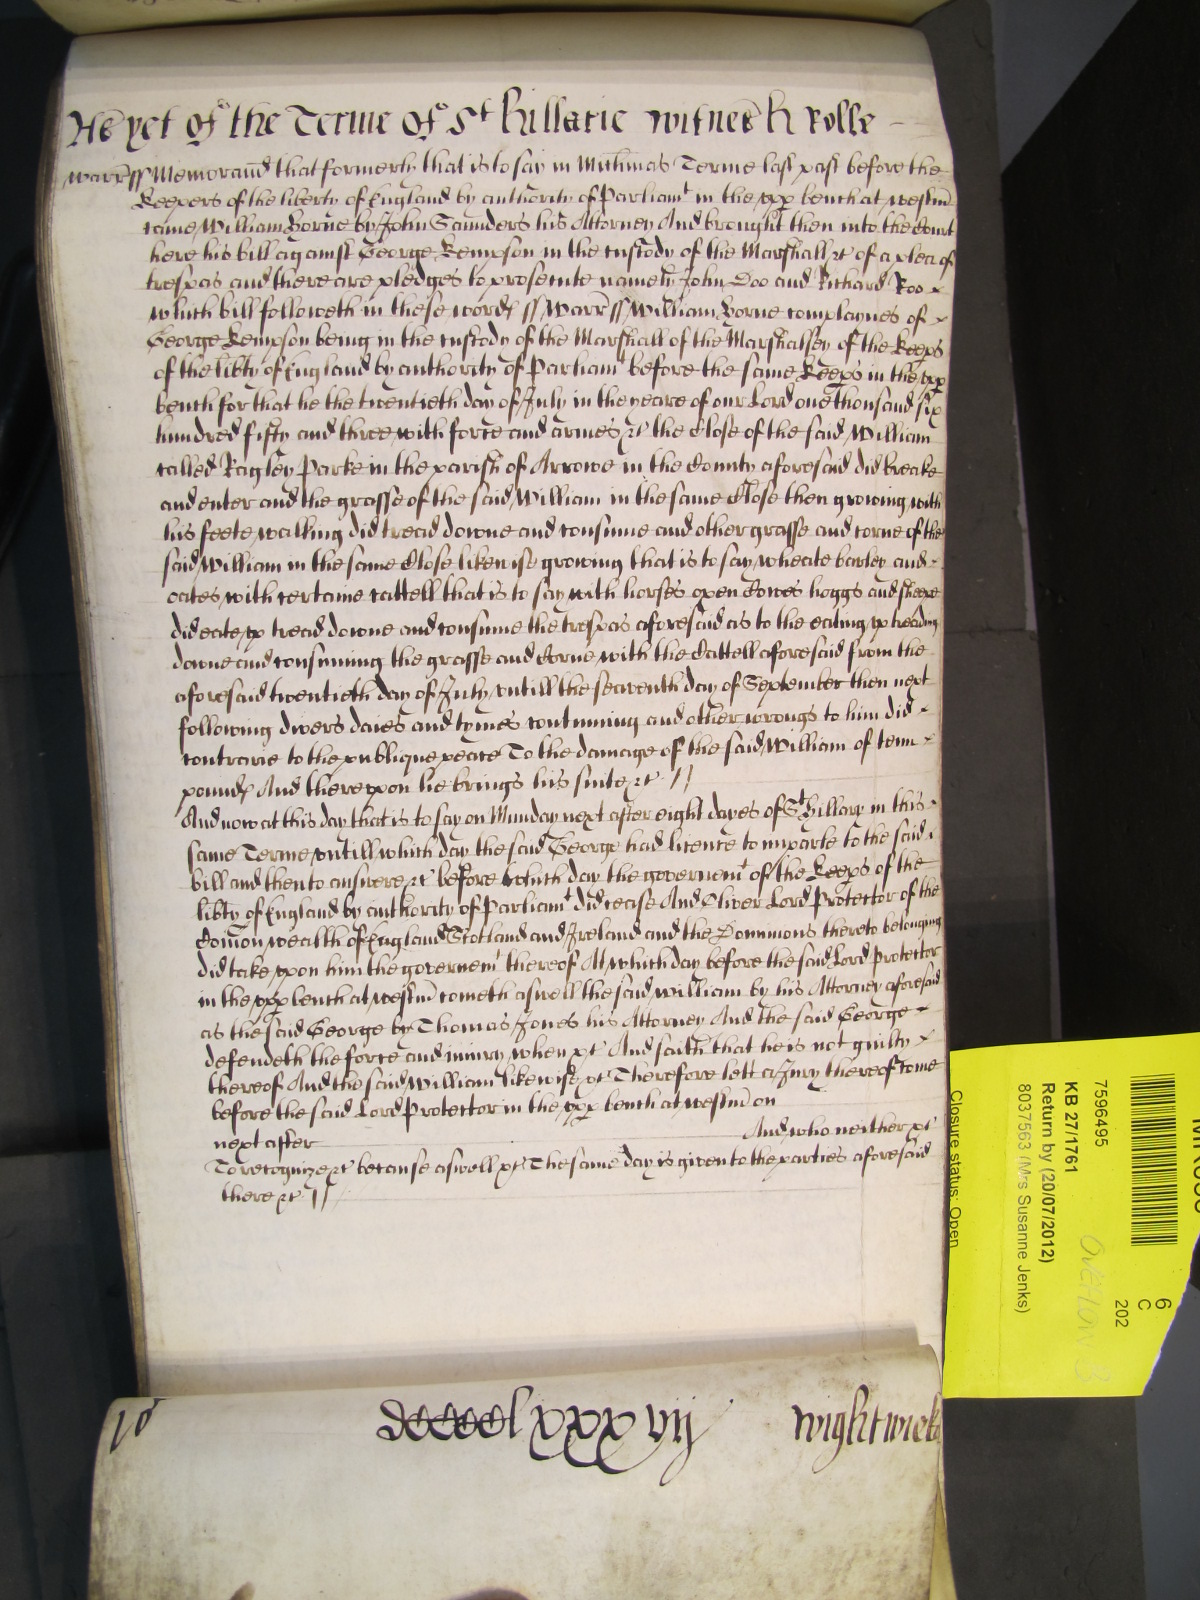 As yet of the Terme of St Hillarie witnes H Rolle
Warr ss Memorand that formerly that is to say in Michmas Terme last past before the
Keepers of the liberty of England by authority of Parliamt in the upp bench at westm
came William Horne by John Saunders his Attorney And brought then into the Court
here his bill against George Kempson in the custody of the Marshall &c of a plea of
trespas and there are pledges to prosecute namely John Doo and Richard Roo
which bill followeth in these words ss Warr ss William Horne complaynes of
George Kempson being in the custody of the Marshall of the Marshalsey of the Keeps
of the libty of England by authority of Parliamt before the same Keeps in the upp
bench for that he the twentieth day of July in the yeare of our Lord one thousand six
hundred fifty and three with force and armes &c the Close of the said William
called Ragley Parke in the parish of Arrowe in the County aforesaid did breake
and enter and the grasse of the said William in the same Close then growing with
his feete walking did tread downe and consume and other grasse and corne of the
said William in the same Close likewise growing that is to say wheate barley and
oates with certaine cattell that is to say with horses oxen Cowes hoggs and sheepe
did eate up tread downe and consume the trespas aforesaid as to the eating up treading
downe and consuming the grasse and Corne with the Cattell aforesaid from the
aforesaid twentieth day of July untill the seaventh day of September then next
following divers daies and tymes continuing and other wrongs to him did
contrarie to the publique peace To the damage of the said William of tenn
pounds And thereupon he brings his suite &c //
And now at this day that is to say on Munday next after eight dayes of St Hillary in this
same Terme untill which day the said George had licence to imparle to the said
bill and then to answere &c before which day the governemt of the Keeps of the
libty of England by authority of Parliamt did cease And Oliver Lord Protector of the
Comon wealth of England Scotland and Ireland and the Dominions thereto belonging
did take upon him the governemt thereof At which day before the said Lord Protector
in the upp bench at westm cometh aswell the said William by his Attorney aforesaid
as the said George by Thomas Jones his Attorney And the said George
defendeth the force and iniury when &c And saith that he is not guilty
thereof And the said William likewise &c Therefore lett a Jury thereof come
before the said Lord Protector in the upp bench at westm on
next after And who neither &c
To recognize &c because aswell &c The same day is given to the parties aforesaid
there &c //
dcccclxxxvij Wightwick
6
C
202
7596495
KB 27/1761
Return by (20/07/2012)
8037563 (Mrs Susanne Jenks)
Closure status: Open
OVERFLOW 3